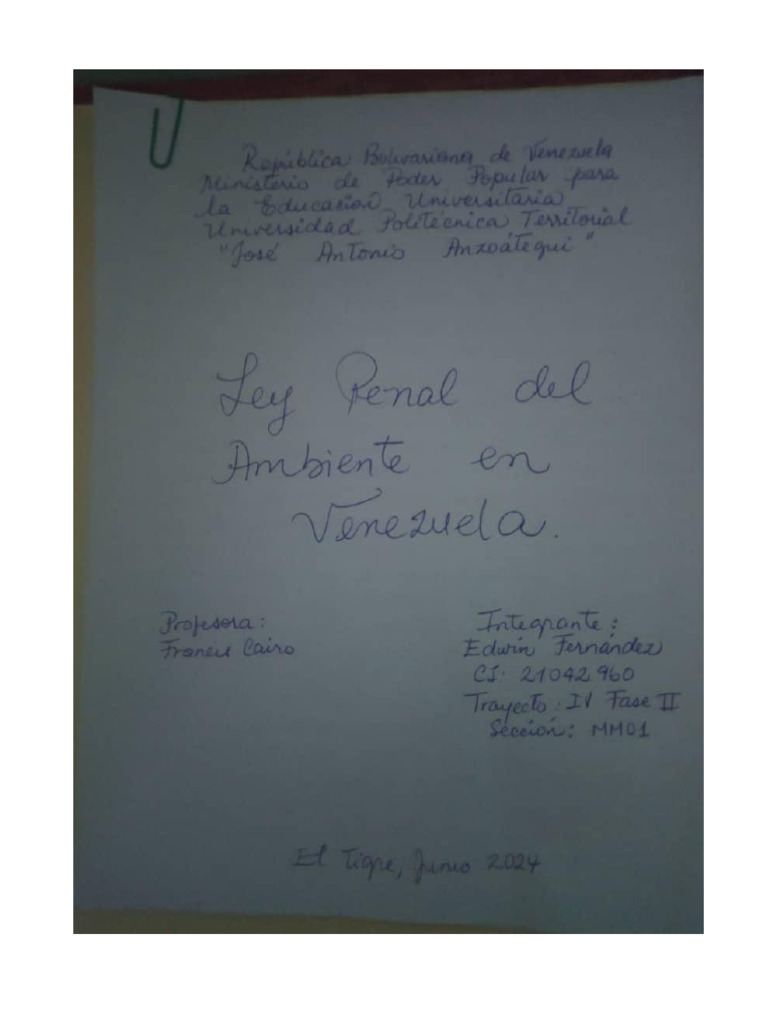 República Bolivariana de Venezuela
Ministerio de Poder Popular para
la Educación Universitaria
Universidad Politécnica Territorial
"José Antonio Anzoátegui"
Ley Penal del
Ambiente en
Venezuela.
Profesora:
Francis Cairo
Integrante:
Edwin Fernández
CI: 21042960
Trayecto: IV Fase II
Sección: MM01
El Tigre, Junio 2024